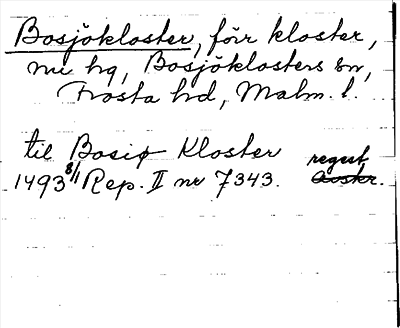 Bosjökloster, förr kloster,
nu hg, Bosjöklosters sn,
Frosta hd, Malm. l.
til Bosiø Kloster
1493 8/1 Rep. II nr 7343. regest. Avskr.